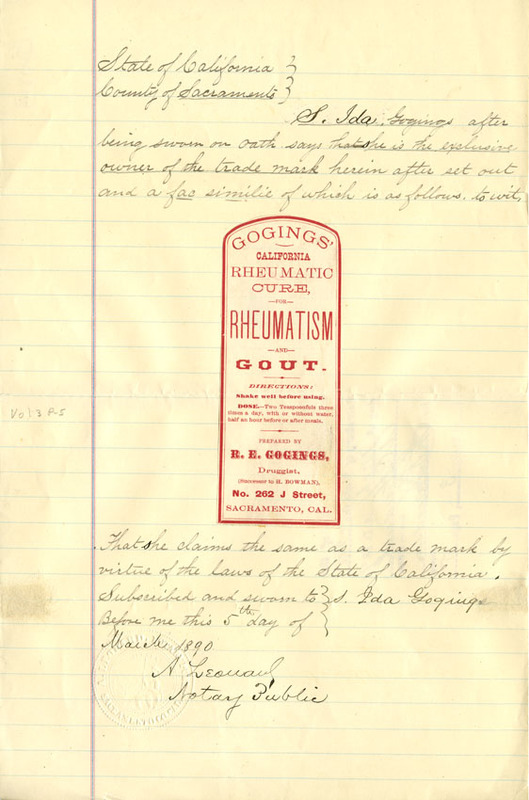 State of California }
County of Sacramento }
S. Ida Gogings after
being sworn on oath says that she is the exclusive
owner of the trade mark herein after set out
and a fac similie of which is as follows. to wit,
GOGINGS'
CALIFORNIA
RHEUMATIC
CURE,
—FOR—
RHEUMATISM
—AND—
GOUT.
DIRECTIONS:
Shake well before using.
DOSE.—Two Teaspoonfuls three
times a day, with or without water,
half an hour before or after meals.
PREPARED BY
R. E. GOGINGS,
Druggist,
(Successor to H. BOWMAN),
No. 262 J Street,
SACRAMENTO, CAL.
Vol 3 P-5
That she claims the same as a trade mark by
virtue of the laws of the State of California.
Subscribed and sworn to } S. Ida Gogings
Before me this 5th day of }
March 1890
A Leonard
Notary Public